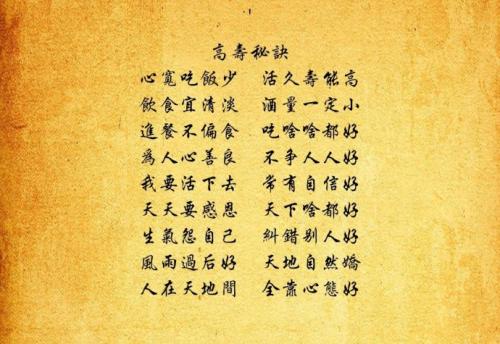 高壽秘訣
心寬吃飯少 活久壽能高
飲食宜清淡 酒量一定小
進餐不偏食 吃啥啥都好
爲人心善良 不爭人人好
我要活下去 常有自信好
天天要感恩 天下啥都好
生氣怨自己 糾錯别人好
風雨過后好 天地自然嬌
人在天地間 全靠心態好